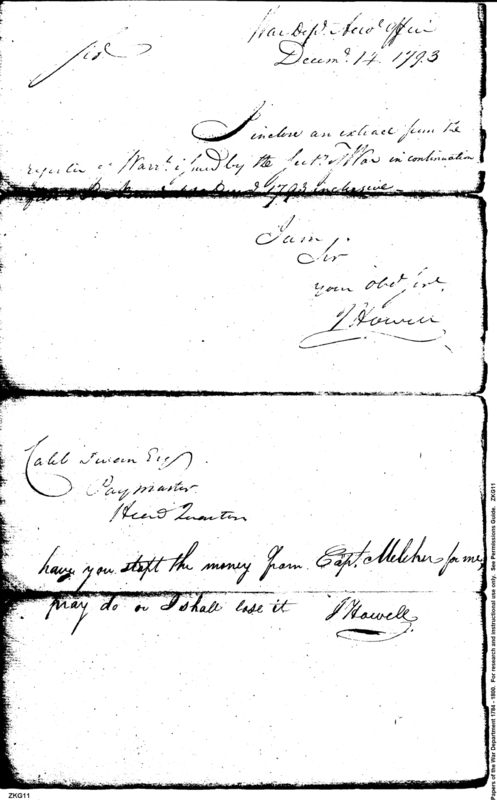 War Dept. Accts Office
Decemr. 14. 1793
Sir
I inclose an extract from the
register of Warrts. issued by the Secy. of War in continuation
1793 inclusive
I am
Sir
your obedt. Svt.
J Howell
Caleb Swan Esq
Paymaster
Head Quarters
have you stopt the money from Capt. Melcher for me,
pray do or I shall lose it J Howell
Papers of the War Department 1784 - 1800. For research and instructional use only. See Permissions Guide. ZKG11
ZKG11